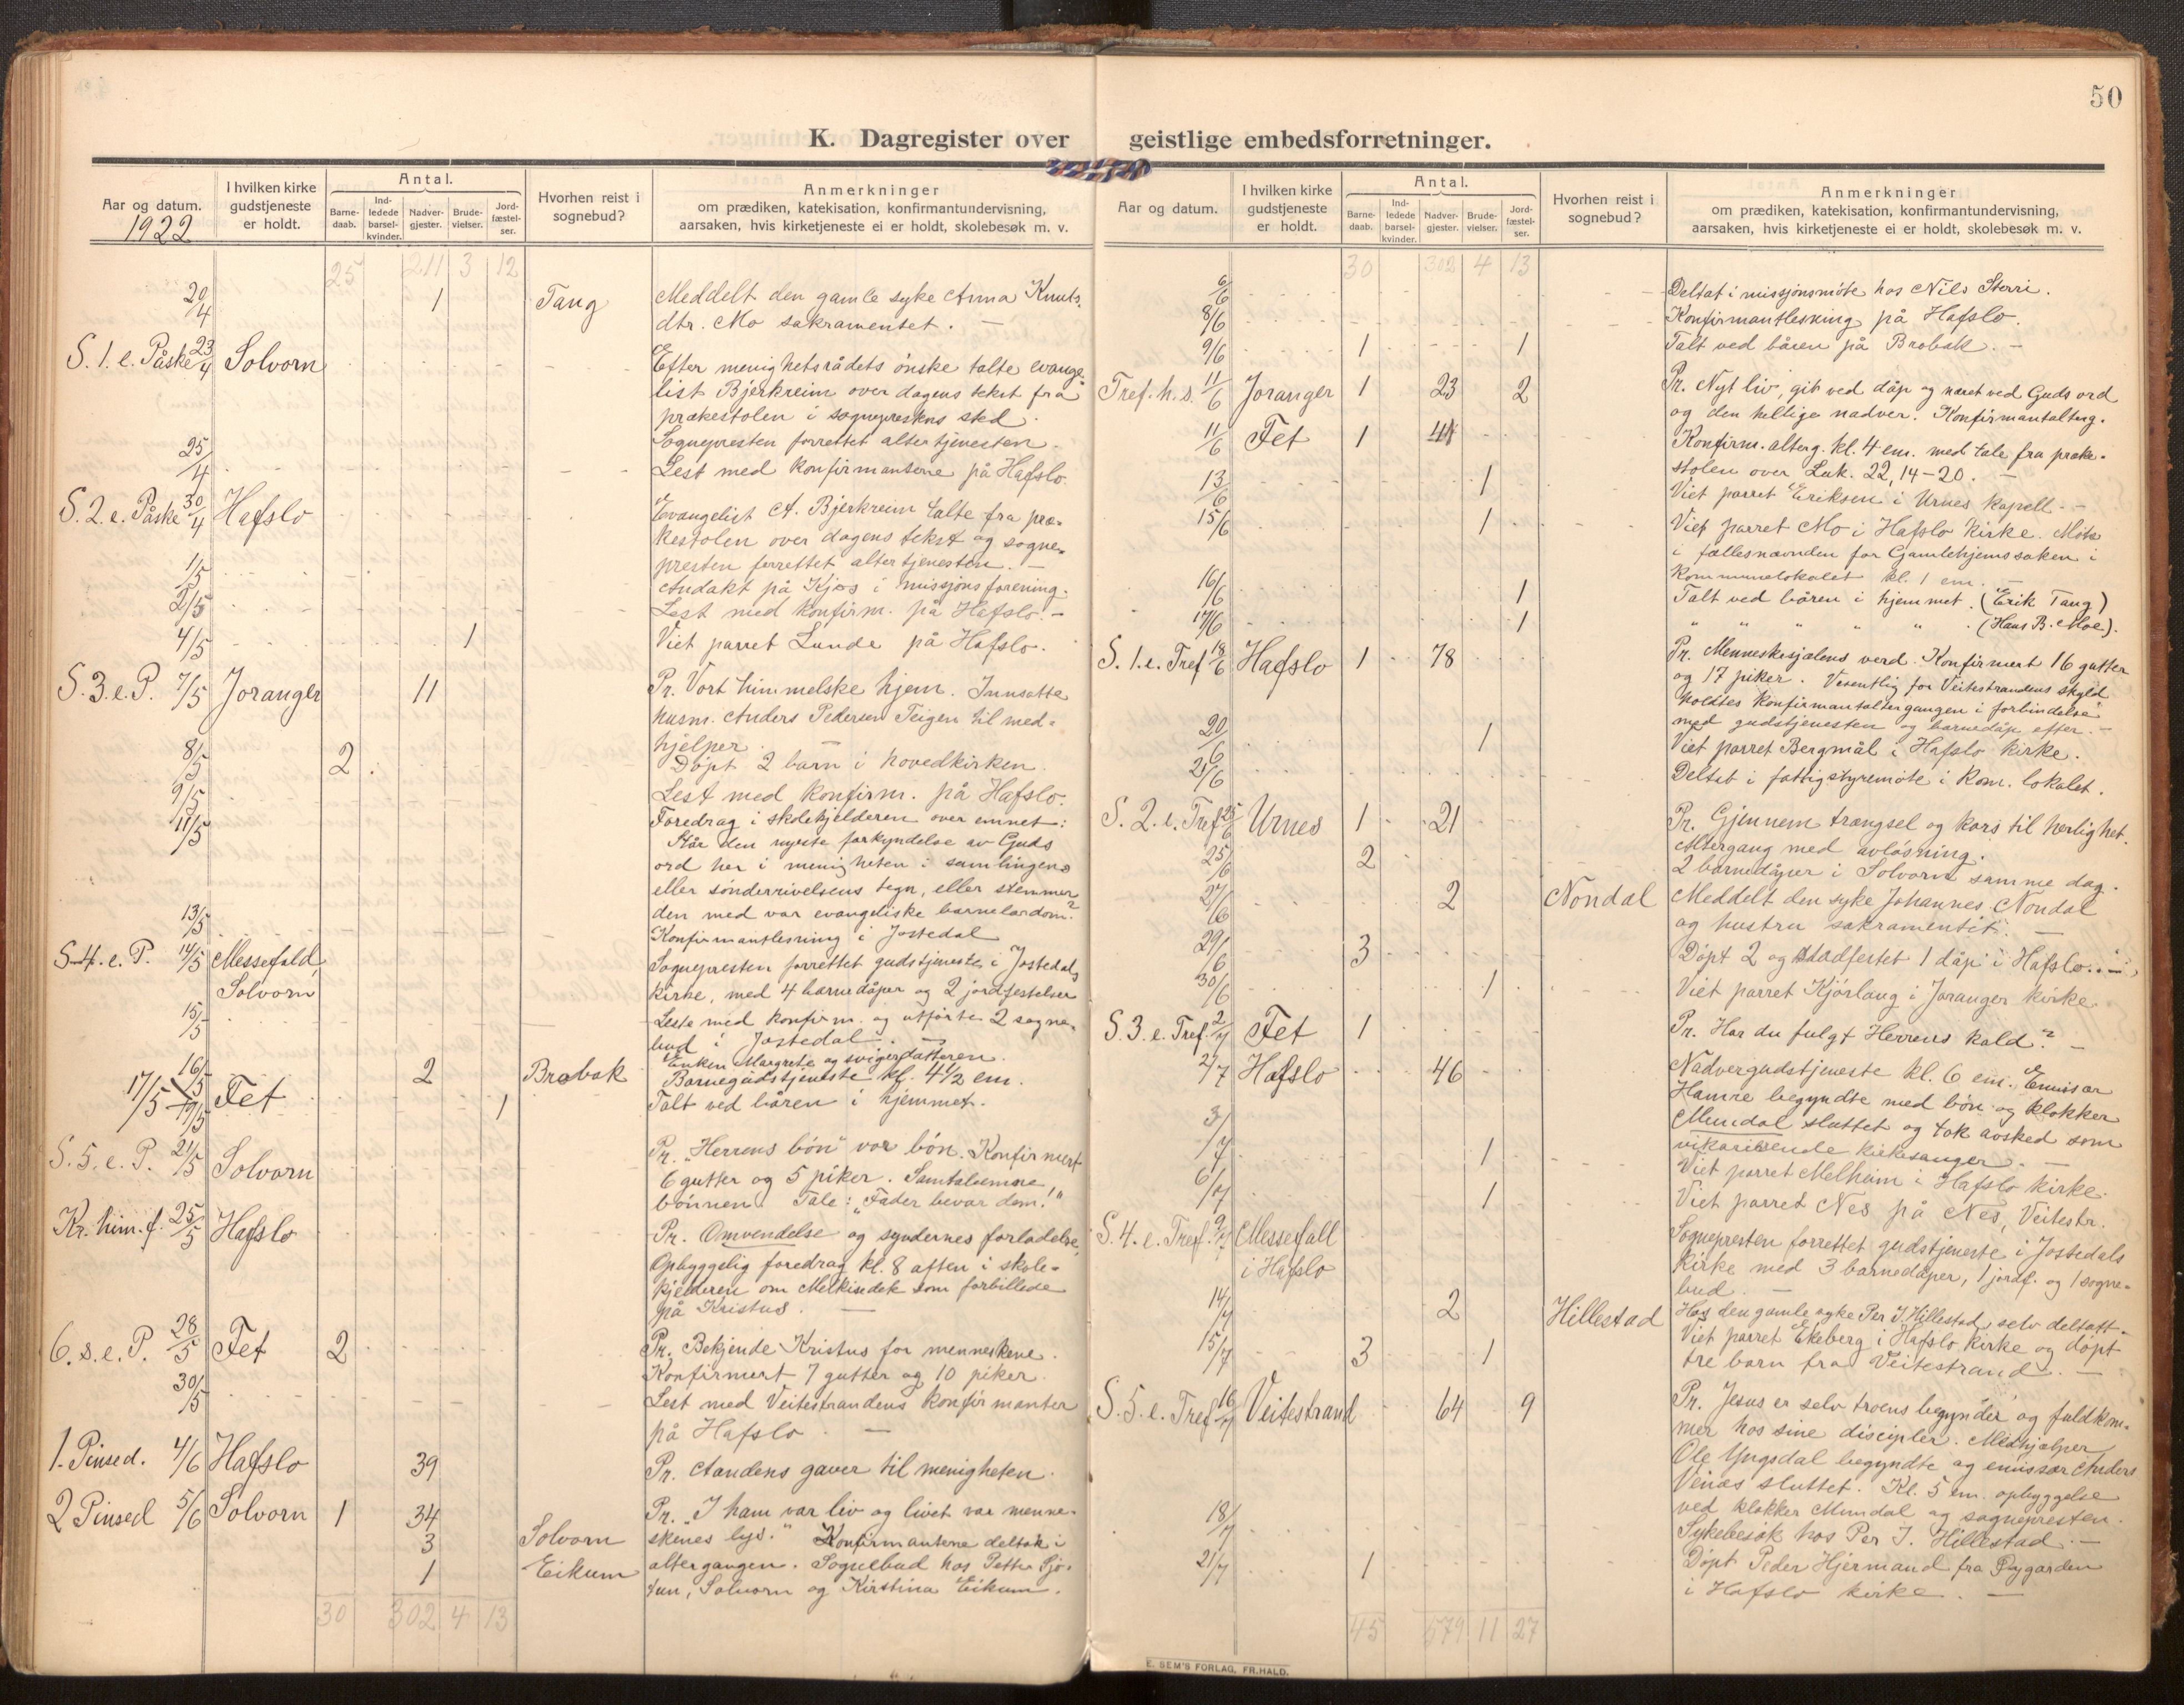 50
K. Dagregister over geistlige embedsforretninger.
Aar og datum. 1922
I hvilken kirke gudstjeneste er holdt.
Antal.
Barne-daab.
Ind-ledede barsel-kvinder.
Nadver-gjester.
Brude-vielser.
Jord-fæstel-ser.
Hvorhen reist i sognebud?
Anmerkninger
om prædiken, katekisation, konfirmantundervisning,
aarsaken, hvis kirketjeneste ei er holdt, skolebesøk m. v.
25 211 3 12
20/4 1 Tang Meddelt den gamle syke Anna Knuts.
dtr. Mo sakramentet. —
S. 1. e. Påske 23/4 Solvorn Efter menighetsrådets ønske talte evange-
list Bjerkreim over dagens tekst fra
prækestolen i sogneprestens sted.
Sognepresten forrettet altertjenesten.
25/4 Lest med konfirmantene på Hafslo.
S. 2. e. Påske 30/4 Hafslo Evangelist A. Bjerkreim talte fra præ-
kestolen over dagens tekst og sogne-
presten forrettet altertjenesten. —
1/5 Andakt på Kjøs i missjonsforening.
2/5 Lest med konfirm. på Hafslo. —
4/5 1 Viet parret Lunde på Hafslo.
S. 3. e. P. 7/5 Joranger 11 Pr. Vort himmelske hjem. Innsatte
husm. Anders Pedersen Teigen til med-
hjelper. —
8/5 2 Døpt 2 barn i hovedkirken.
9/5 Lest med konfirm. på Hafslo.
11/5 Foredrag i skolekjelderen over emnet:
Står den nyeste forkyndelse av Guds
ord her i menigheten i samlingens
eller sønderrivelsens tegn, eller stemmer
den med vor evangeliske barnelærdom?
13/5 Konfirmantlesning i Jostedal
S. 4. e. P. 14/5 Messefald, Solvorn Sognepresten forrettet gudstjeneste i Jostedals
kirke, med 4 barnedåper og 2 jordfestelser
15/5 Leste med konfirm. og utførte 2 sogne-
bud i Jostedal. —
16/5 2 Brobak Enken Margrete og svigerdatteren.
17/5 Fet Barnegudstjeneste kl. 4 1/2 em.
19/5 1 Talt ved båren i hjemmet.
S. 5. e. P. 21/5 Solvorn Pr. „Herrens bøn" vor bøn. Konfirmert
6 gutter og 5 piker. Samtaleemne,
bønnen. Tale: „Fader bevar dem!"
Kr. him. f. 25/5 Hafslo Pr. Omvendelse og syndernes forladelse,
Opbyggelig foredrag kl. 8 aften i skole-
kjelderen om Melkisedek som forbillede
på Kristus. —
6. s. e. P. 28/5 Fet 2 Pr. Bekjende Kristus for menneskene.
Konfirmert 7 gutter og 10 piker.
30/5 Lest med Veitestrandens konfirmanter
på Hafslo. —
1. Pinsed. 4/6 Hafslo 39 Pr. Aandens gaver til menigheten.
2 Pinsed 5/6 Solvorn 1 34 Pr. „I ham var liv og livet var menne-
3 Solvorn skenes lys." Konfirmantene deltok i
1 Eikum altergangen. Sognebud hos Petter Sjø-
tun, Solvorn og Kirstina Eikum.
30 302 4 13
Aar og datum.
I hvilken kirke gudstjeneste er holdt.
Antal.
Barne-daab.
Ind-ledede barsel-kvinder.
Nadver-gjester.
Brude-vielser.
Jord-fæstel-ser.
Hvorhen reist i sognebud?
Anmerkninger
om prædiken, katekisation, konfirmantundervisning,
aarsaken, hvis kirketjeneste ei er holdt, skolebesøk m. v.
30 302 4 13
6/6 Deltat i missjonsmøte hos Nils Sterri.
8/6 Konfirmantlesning på Hafslo.
9/6 1 1 Talt ved båren på Brobak. —
Tref. h. s. 11/6 Joranger 1 23 2 Pr. Nyt liv, git ved dåp og næret ved Guds ord
og den hellige nadver. Konfirmantalterg.
11/6 Fet 1 41 Konfirm. alterg. kl. 4 em. med tale fra præke-
stolen over Luk. 22, 14-20. —
13/6 1 Viet parret Eriksen i Urnes kapell. —
15/6 1 Viet parret Mo i Hafslo kirke. Møte
i fællesnævnden for Gamlehjemssaken i
kommunelokalet kl. 1 em. —
16/6 1 Talt ved båren i hjemmet. (Erik Tang)
17/6 1 " " " " " (Hans B. Moe).
S. 1. e. Tref 18/6 Hafslo 1 78 Pr. Menneskesjælens verd. Konfirmert 16 gutter
og 17 piker. Vesentlig for Veitestrandens skyld
holdtes konfirmantaltergangen i forbindelse
med gudstjenesten og barnedåp efter. —
20/6 1 Viet parret Bergmål i Hafslo kirke.
21/6 Deltat i fattigstyremøte i kom. lokalet.
S. 2. e. Tref 25/6 Urnes 1 21 Pr. Gjennem trængsel og kors til herlighet.
Altergang med avløsning.
25/6 2 2 barnedåper i Solvorn samme dag.
27/6 2 Nondal Meddelt den syke Johannes Nondal
og hustru sakramentet. —
29/6 3 Døpt 2 og stadfestet 1 dåp i Hafslo. —
30/6 1 Viet parret Kjørlaug i Joranger kirke.
S. 3. e. Tref. 2/7 Fet 1 Pr. Har du fulgt Herrens kald? —
2/7 Hafslo 46 Nadvergudstjeneste kl. 6 em. Emisær
Hamre begyndte med bøn og klokker
Mundal sluttet og tok avsked som
vikarierende kirkesanger. —
3/7 1 Viet parret Melheim i Hafslo kirke.
6/7 1 Viet parret Nes på Nes, Veitestr.
S. 4. e. Tref. 9/7 Messefall i Hafslo Sognepresten forrettet gudstjeneste i Jostedals
kirke med 3 barnedåper, 1 jordf. og 1 sogne-
bud. —
14/7 2 Hillestad Hos den gamle syke Per J. Hillestad, selv deltatt.
15/7 3 1 Viet parret Ekeberg i Hafslo kirke og døpt
tre barn fra Veitestrand. —
S. 5. e. Tref 16/7 Veitestrand 64 9 Pr. Jesus er selv troens begynder og fuldkom-
mer hos sine discipler. Medhjælper
Ole Yngsdal begyndte og emissær Anders
Venæs sluttet. Kl. 5 em. opbyggelse
ved klokker Mundal og sognepresten.
18/7 Sykebesøk hos Per J. Hillestad. —
21/7 1 Døpt Peder Hjermand fra Rygarden
i Hafslo kirke. —
45 579 11 27
E. SEM'S FORLAG, FR.HALD.